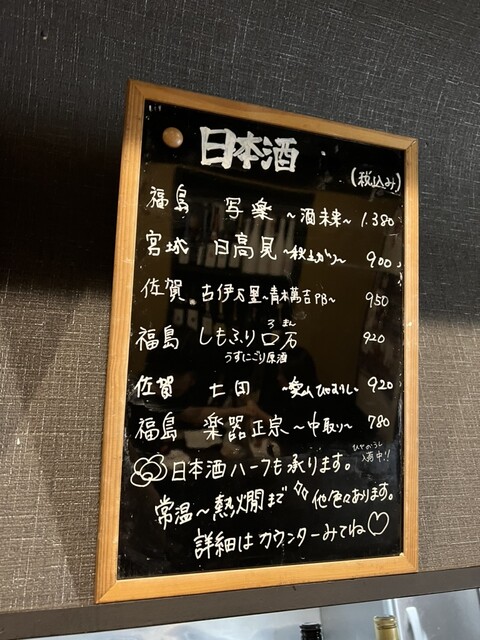 日本酒
(税込み)
福島 写楽 ~酒未来~ 1.380
宮城 日高見 ~秋あがり~ 900
佐賀 古伊万里 ~青木萬吉PB~ 950
ろ まん
福島 しもふりロ万 920
うすにごり原酒
佐賀 七田 ~愛山ひやおろし~ 920
福島 楽器正宗 ~中取り~ 780
ひやおろし
入荷中!!
日本酒ハーフも承ります。
常温~熱燗まで 他色々あります。
詳細はカウンターみてね♡